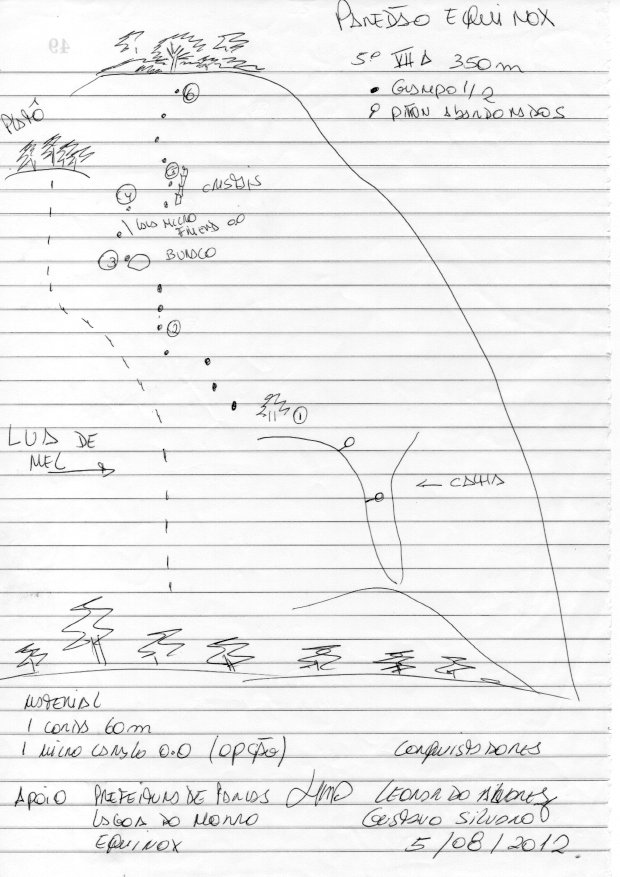 PAREDÃO EQUINOX
5º VIIA 350m
• GRAMPO 1/2
PITON ABANDONADOS
6
PLATÔ
5
CRISTAIS
4
MICRO
FRIEND 0.0
3
BURACO
2
1
LUA DE
MEL
← CALHA
MATERIAL
1 CORDA 60m
1 MICRO CAMALO 0.0 (OPÇÃO)
CONQUISTADORES
APOIO PREFEITURA DE
LEONARDO
LAGOA DO
GUSTAVO SILVANO
EQUINOX
5/08/2012
49